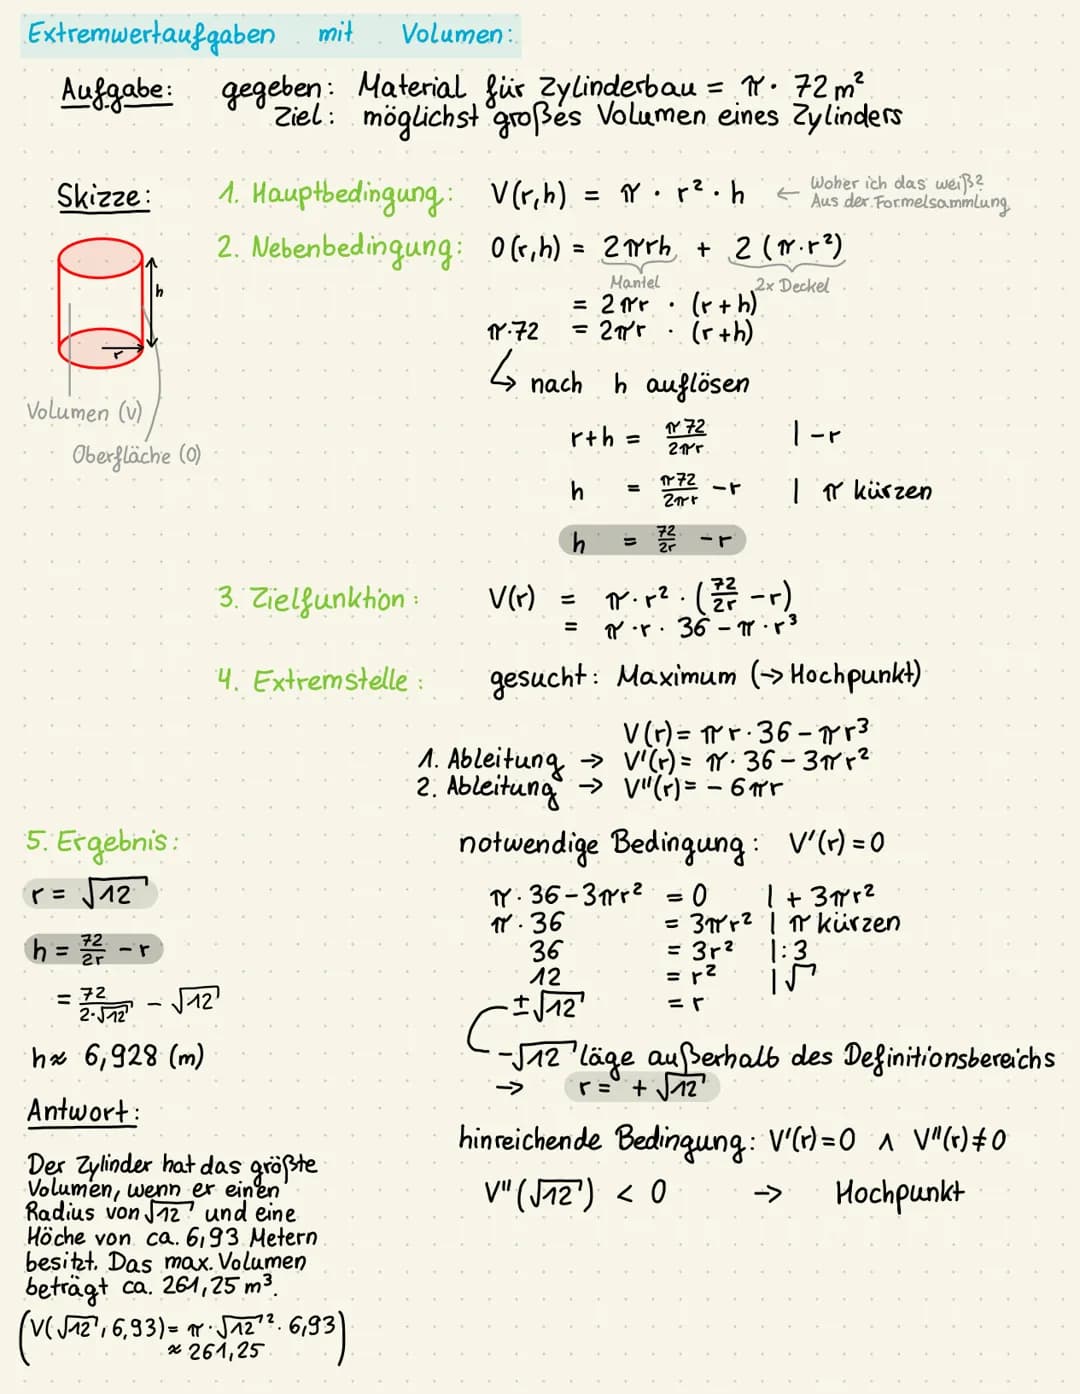 Extremwertaufgaben mit Volumen:
Aufgabe: gegeben: Material für Zylinderbau = π · 72 m²
Ziel: möglichst großes Volumen eines Zylinders
Skizze:
h
r
Volumen (V)
Oberfläche (O)
1. Hauptbedingung: V(r,h) = π · r² · h ← Woher ich das weiß?
Aus der Formelsammlung
2. Nebenbedingung: O(r,h) = 2πrh + 2(π·r²)
Mantel 2x Deckel
= 2πr · (r+h)
π·72 = 2πr · (r+h)
↳ nach h auflösen
r+h = π72/2πr | -r
h = π72/2πr -r | π kürzen
h = 72/2r -r
3. Zielfunktion: V(r) = π·r²·(72/2r -r)
= π·r·36-π·r³
4. Extremstelle: gesucht: Maximum (→Hochpunkt)
V(r)= πr·36-πr³
1. Ableitung → V'(r)= π·36-3πr²
2. Ableitung → V''(r)= -6πr
notwendige Bedingung: V'(r)=0
π·36-3πr² = 0 | + 3πr²
π·36 = 3πr² | π kürzen
36 = 3r² |:3
12 = r² |√
±√12 = r
-√12 läge außerhalb des Definitionsbereichs
→ r= +√12
hinreichende Bedingung: V'(r)=0 ∧ V''(r)≠0
V''(√12) < 0 → Hochpunkt
5. Ergebnis:
r = √12
h = 72/2r -r
= 72/2·√12 - √12
h≈ 6,928 (m)
Antwort:
Der Zylinder hat das größte
Volumen, wenn er einen
Radius von √12 und eine
Höche von ca. 6,93 Metern
besitzt. Das max. Volumen
beträgt ca. 261,25 m³.
(V(√12, 6,93)= π·√12²·6,93)
≈ 261,25